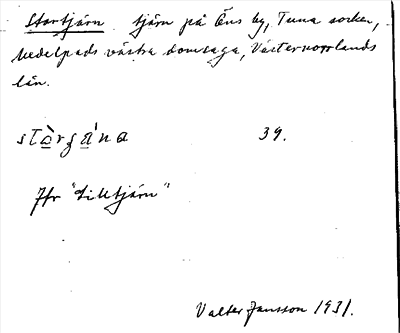 Stortjärn tjärn på Öns by, Tuna socken,
Medelpads västra domsaga, Västernorrlands
län.
39.
Jfr "Lilltjärn"
Valter Jansson 1931.